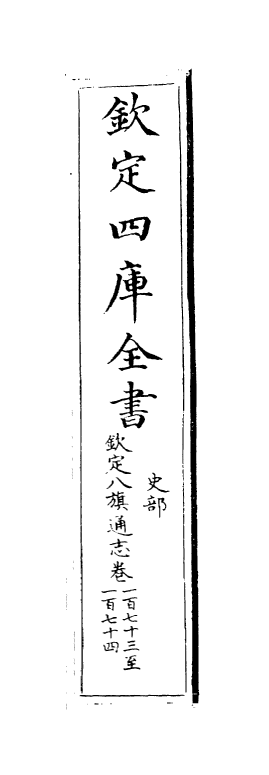 欽定四庫全書
史部
欽定八旗通志卷
一百七十三至
一百七十四